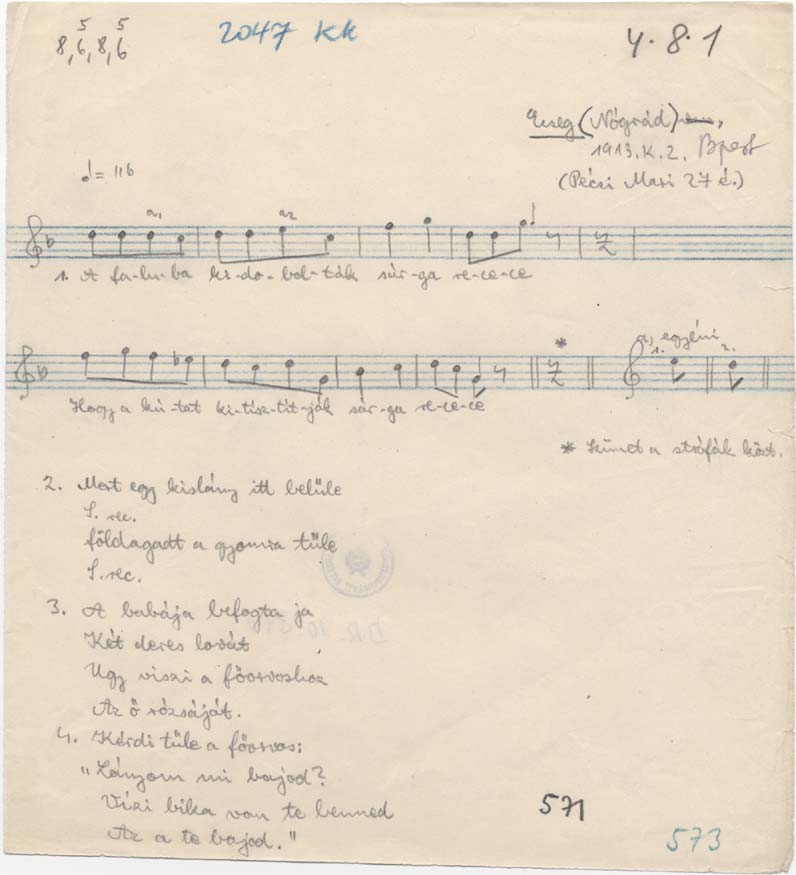 5 5
8,6,8,6
2047 Kk
4.8.1
Ecseg (Nógrád)
1913.X.2. Bpest
(Péczi Mari 27 é.)
= 116
a1 a2
1. A fa-lu-ba ki-do-bol-ták sár-ga re-ce-ce
* a, egyéni
1. 2.
Hogy a kú-tat ki-tisz-tít-ják sár-ga re-ce-ce
* szünet a strófák közt.
2. Mert egy kislány itt belüle
S. rec.
földagadt a gyomra tüle
S. rec.
3. A babája befogta ja
Két deres lovát
Ugy viszi a főorvoshoz
Az ő rózsáját.
4. Kérdi tüle a főorvos:
"Lányom mi bajod?
Vízi bika van te benned
Az a te bajod."
571
573